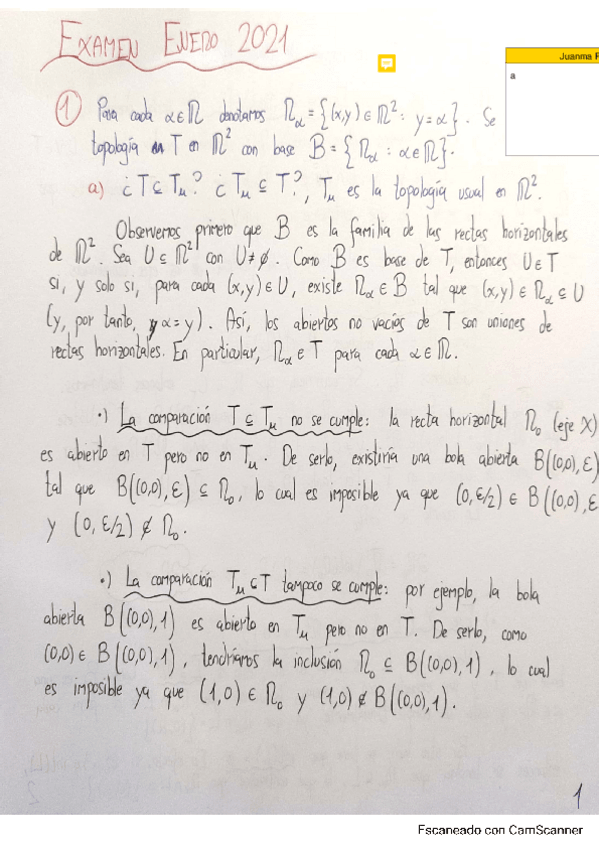 EXAMEN ENERO 2021
Juanma F
a
① Para cada α∈ℝ denotamos R_α = {(x,y) ∈ ℝ² : y = α}. Se
topología T en ℝ² con base B = {R_α : α∈ℝ}.
a) ¿T ⊆ T_u? ¿T_u ⊆ T?, T_u es la topología usual en ℝ².
Observemos primero que B es la familia de las rectas horizontales
de ℝ². Sea U ⊆ ℝ² con U ≠ ∅. Como B es base de T, entonces U∈T
si, y solo si, para cada (x,y) ∈ U, existe R_α ∈ B tal que (x,y) ∈ R_α ⊆ U
(y, por tanto, α = y). Así, los abiertos no vacíos de T son uniones de
rectas horizontales. En particular, R_α ∈ T para cada α∈ℝ.
·) La comparación T ⊆ T_u no se cumple: la recta horizontal R₀ (eje X)
es abierto en T pero no en T_u. De serlo, existiría una bola abierta B((0,0), ε)
tal que B((0,0), ε) ⊆ R₀, lo cual es imposible ya que (0, ε/2) ∈ B((0,0), ε
y (0, ε/2) ∉ R₀.
·) La comparación T_u ⊆ T tampoco se cumple: por ejemplo, la bola
abierta B((0,0), 1) es abierto en T_u pero no en T. De serlo, como
(0,0) ∈ B((0,0), 1), tendríamos la inclusión R₀ ⊆ B((0,0), 1), lo cual
es imposible ya que (1,0) ∈ R₀ y (1,0) ∉ B((0,0), 1).
1
Escaneado con CamScanner